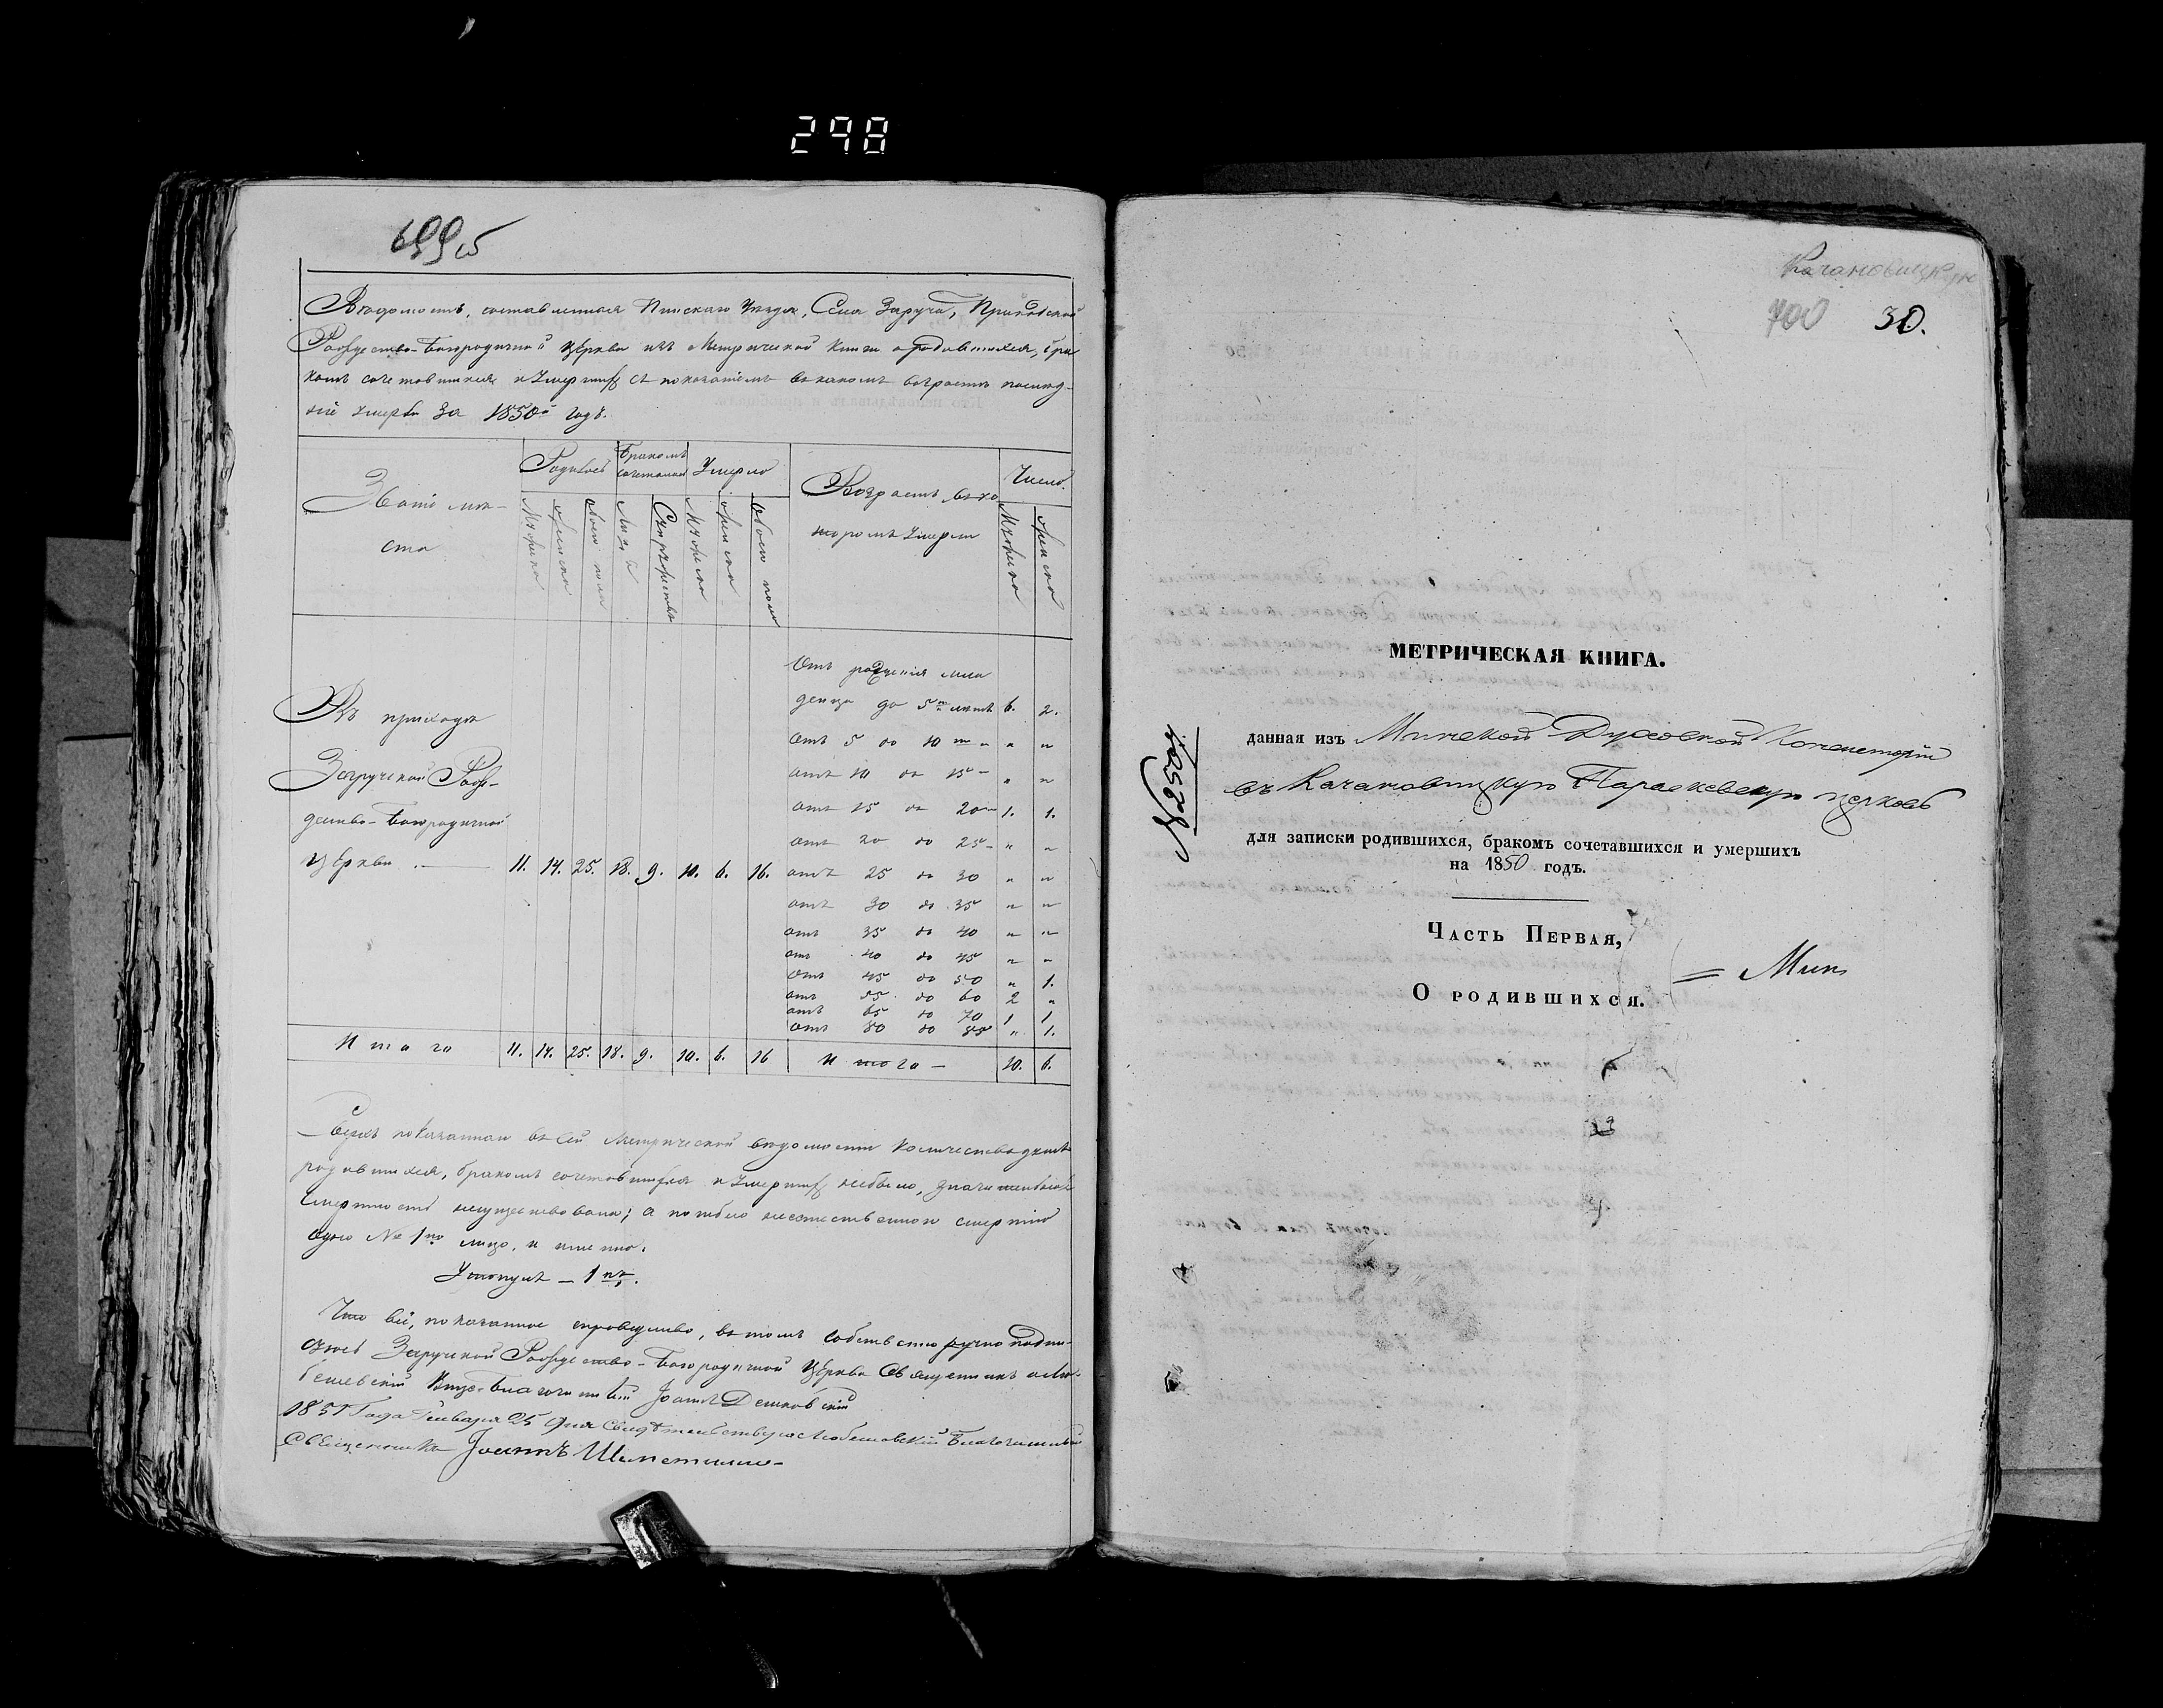 298
699 об
Ведомость, составленная Пинскаго Уезда, Села Заручя, Приходской
Рождество-Богородичной церкви изъ Метрической книги о родившихся, бра
комъ сочетавшихся и умершихъ съ показаніемъ въ какомъ возрасте последніе умерли за 1850й годъ.
Званіе мес-
та
Родилось
Бракомъ сочетались
Умерло
Возрастъ въ ко
торомъ умерли
Число.
Мужеска
женска
обоего пола
Лица
Супружествъ
Мужеска
женска
обоего пола
Мужеска
женска
Въ приходе
Заручской Рож-
дество-Богородичной
церкви . 11. 14. 25. 18. 9. 10. 6. 16.
Отъ рожденія мла
денца до 5ти летъ 6. 2.
Отъ 5 до 10 ти " " "
отъ 10 до 15 - " "
отъ 15 до 20 - 1. 1.
отъ 20 до 25 - " "
отъ 25 до 30 " "
отъ 30 до 35 " "
отъ 35 до 40 " "
отъ 40 до 45 " "
отъ 45 до 50 " 1.
отъ 55 до 60 2 "
отъ 65 до 70 1 1
отъ 80 до 85 " 1.
Итого 11. 14. 25. 18. 9. 10. 6. 16 Итого - 10. 6.
Сверхъ показаннаго въ сей Метрической ведомости количества детей
родившихся, бракомъ сочетавшихся и умершихъ небыло,
смертность несуществовала; а погибло неестественною смертію
одно № 1но лицо, и именно.
Утонулъ - 1нъ.
Что всё, показанное справедливо, въ томъ собственноручно подпи-
суюсь Заручской Рождество-Богородичной церкви Священникъ и Лю-
бешевскій Вице-Благочинный Іоаннъ
1851 Года Января 25 дня Свидетельствую Любешовскій Благочинный
Священникъ Іоаннъ
Качановицкую
700 30.
МЕТРИЧЕСКАЯ КНИГА.
данная изъ Минской Духовной Консисторіи
въ Качановицкую Параскевскую церковь
для записки родившихся, бракомъ сочетавшихся и умершихъ
на 1850 годъ.
Часть Первая,
О родившихся.
= Мин